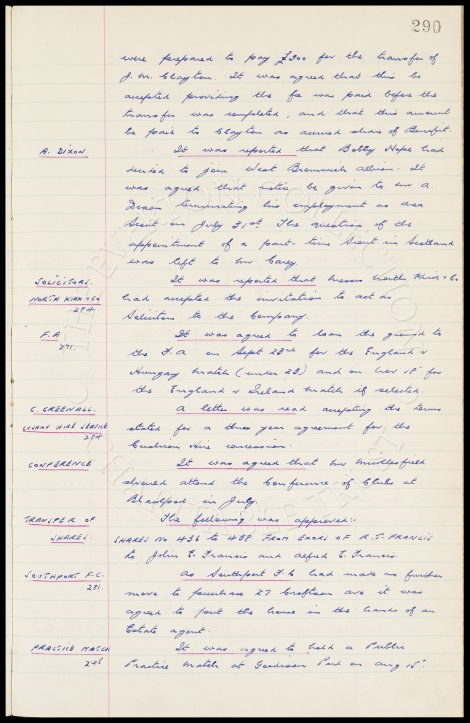 290
were prepared to pay £300 for the transfer of
J.M. Clayton. It was agreed that this be
accepted providing the fee was paid before the
transfer was completed, and that this amount
be paid to Clayton as accrued share of Benefit.
A. DIXON
It was reported that Bobby Hope had
decided to join West Bromwich Albion. It
was agreed that notice be given to Mr A
Dixon terminating his employment as area
Scout on July 31st. The question of the
appointment of a part-time Scout in Scotland
was left to Mr Carey.
SOLICITORS.
NORTH KIRK & Co
284
It was reported that Messrs North Kirk & Co.
had accepted the invitation to act as
Solicitors to the Company.
F.A.
271.
It was agreed to loan the ground to
the F.A on Sept 23rd for the England v
Hungary Match (under 23) and on Nov 18th for
the England v Ireland match if selected.
C. GREENALL.
CUSHION HIRE SERVICE
284
A letter was read accepting the terms
stated for a three year agreement for the
Cushion Hire concession.
CONFERENCE
It was agreed that Mr
should attend the Conference of Clubs at
Blackpool in July.
TRANSFER OF
SHARES.
The following was approved:-
SHARES NO 436 to 438 FROM EXORS OF R.T. FRANCIS
to John E. Francis and Alfred E. Francis.
SOUTHPORT F.C.
281.
As Southport F.C had made no further
move to purchase 27 Ave it was
agreed to put the house in the hands of an
Estate agent.
PRACTICE MATCH
248
It was agreed to hold a Public
Practice Match at Goodison Park on Aug 15th.